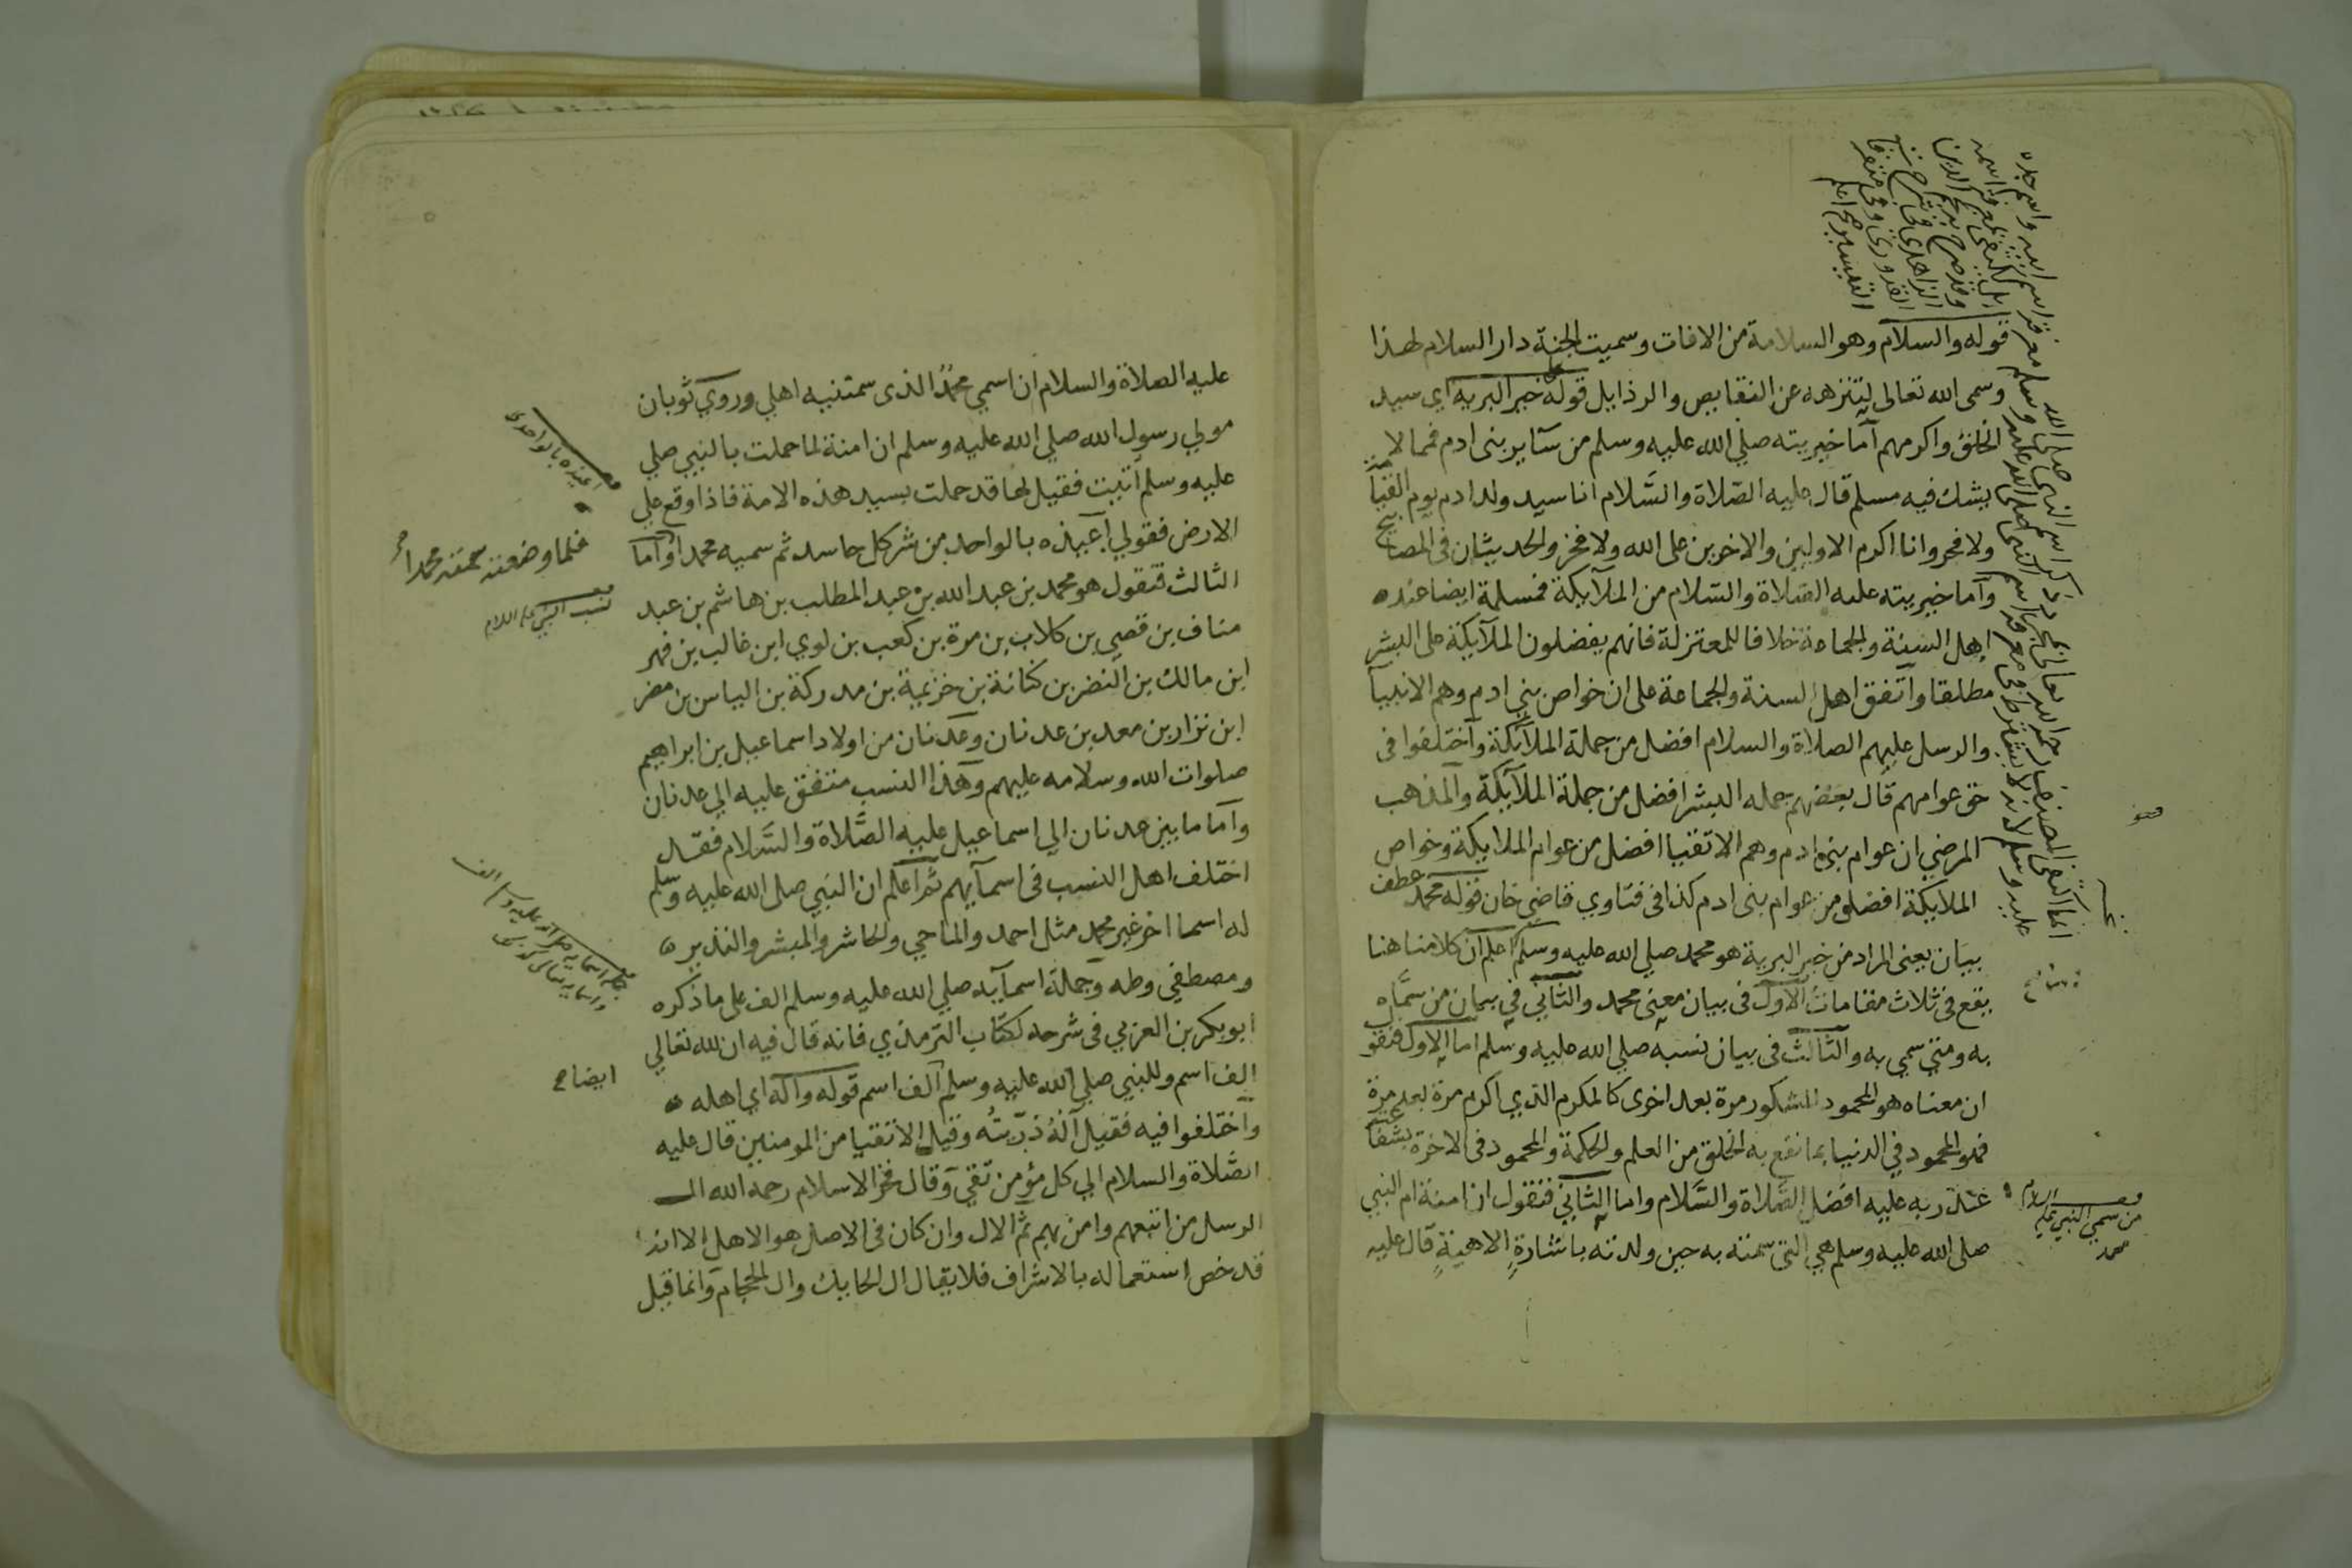 قوله والسلام وهو السلامة من الافات وسميت الجنة دار السلام لهذا
وسمى الله تعالى لتنزهه عن النقايص والرذايل قوله خير البرية اي سيد
الخلق واكرمهم اما خيريته صلي الله عليه وسلم من ساير بنى ادم فمما لا
يشك فيه مسلم قال عليه الصلاة والسلام انا سيد ولد ادم يوم القيامة
ولا فخر وانا اكرم الاولين والاخرين على الله ولا فخر والحديثان في المصابيح
واما خيريته عليه الصلاة والسلام من الملايكة فمسلمة ايضا عنده
اهل السنة والجماعة خلافا للمعتزلة فانهم يفضلون الملايكة على البشر
مطلقا واتفق اهل السنة والجماعة على ان خواص بني ادم وهم الانبيا
والرسل عليهم الصلاة والسلام افضل من جملة الملايكة واختلفوا فى
حق عوامهم قال بعضهم جمله البشر افضل من جملة الملايكة والمذهب
المرضي ان عوام بنى ادم وهم الاتقيا افضل من عوام الملايكة وخواص
الملايكة افضل من عوام بنى ادم كذا فى فتاوي قاضى خان قوله محمد عطف
بيان يعنى المراد من خير البرية هو محمد صلي الله عليه وسلم اعلم ان كلامنا هنا
يقع فى ثلاث مقامات الاول فى بيان معنى محمد والثاني في بيان من سماه
به ومتى سمي به والثالث فى بيان نسبه صلي الله عليه وسلم اما الاول فنقول
ان معناه هو المحمود المشكور مرة بعد اخرى كالمكرم الذي اكرم مرة بعد مرة
فهو المحمود في الدنيا بما نفع به الخلق من العلم والحكمة والمحمود فى الاخرة بشفاعته
عند ربه عليه افضل الصلاة والسلام واما الثاني فنقول ان امنة ام النبي
صلى الله عليه وسلم هي التى سمته به حين ولدته باشارة الاهية قال عليه
من سمي النبي عليه السلام
محمد
عليه الصلاة والسلام ان اسمي محمد الذى سمتنيه اهلي وروي ثوبان
مولي رسول الله صلي الله عليه وسلم ان امنة لما حملت بالنبي صلي
عليه وسلم اتيت فقيل لها قد حملت بسيد هذه الامة فاذا وقع علي
الارض فقولي اعيذه بالواحد من شر كل حاسد ثم سميه محمدا واما
الثالث فنقول هو محمد بن عبد الله بن عبد المطلب بن هاشم بن عبد
مناف بن قصي بن كلاب بن مرة بن كعب بن لوي ابن غالب بن فهر
ابن مالك بن النضر بن كنانة بن خزيمة بن مدركة بن الياس بن مضر
ابن نزار بن معد بن عدنان وعدنان من اولاد اسماعيل بن ابراهيم
صلوات الله وسلامه عليهم وهذا النسب متفق عليه الي عدنان
واما ما بين عدنان الي اسماعيل عليه الصلاة والسلام فقد
اختلف اهل النسب فى اسمايهم ثم اعلم ان النبي صلى الله عليه وسلم
له اسما اخر غير محمد مثل احمد والماحي والحاشر والمبشر والنذير
ومصطفي وطه وجملة اسمايه صلي الله عليه وسلم الف على ما ذكره
ابو بكر بن العزبي فى شرحه لكتاب الترمذي فانه قال فيه ان لله تعالي
الف اسم وللنبي صلي الله عليه وسلم الف اسم قوله واله اي اهله
واختلفوا فيه فقيل اله ذريته وقيل الاتقيا من المومنين قال عليه
الصلاة والسلام الي كل مؤمن تقي وقال فخر الاسلام رحمه الله ال
الرسل من اتبعهم وامن بهم ثم الال وان كان فى الاصل هو الاهل الا انه
قد خص استعماله بالاشراف فلا يقال ال الحايك وال الحجام وانما قيل
اعيذه بالواحد
فلما وضعته سمته محمدا
نسب النبي عليه السلام
ايضاح